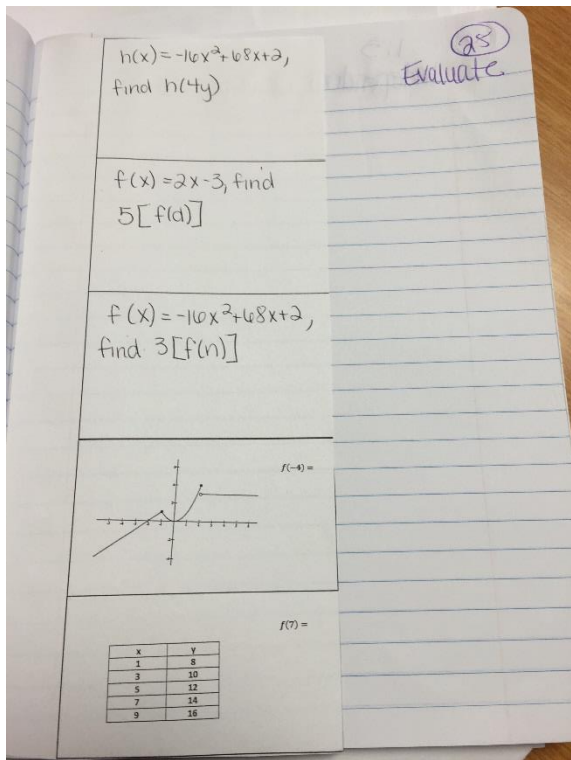 25
Evaluate
h(x) = -16x²+68x+2,
find h(4y)
f(x) =2x-3, find
5[f(d)]
f(x) = -16x²+68x+2,
find 3[f(n)]
f(-4) =
f(7) =
x Y
1 8
3 10
5 12
7 14
9 16